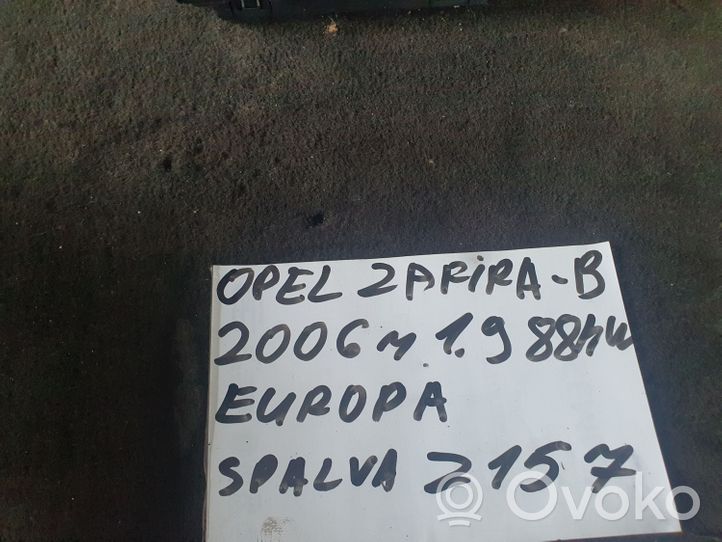 OPEL ZAFIRA-B
2006m. 1.9 88kw
EUROPA
SPALVA Z157
Ovoko